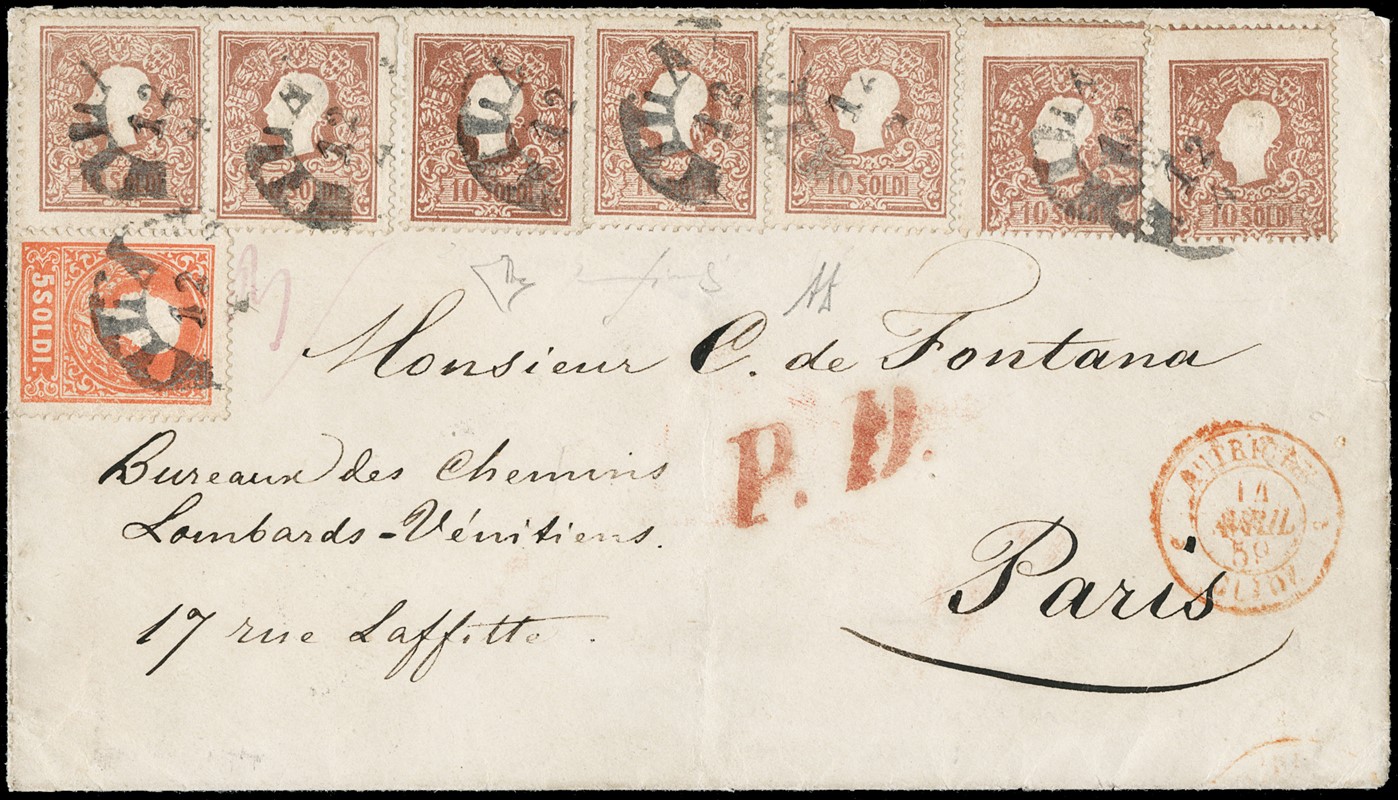 10 SOLDI
10 SOLDI
10 SOLDI
10 SOLDI
10 SOLDI
10 SOLDI
10 SOLDI
12
12
12
12
12
12
12
5 SOLDI.
12
Monsieur C. de Fontana
P. D.
Bureaux des Chemins
Lombards-Vénitiens.
17 rue Laffitte.
Paris
AUTRICHE
14
AVRIL
59